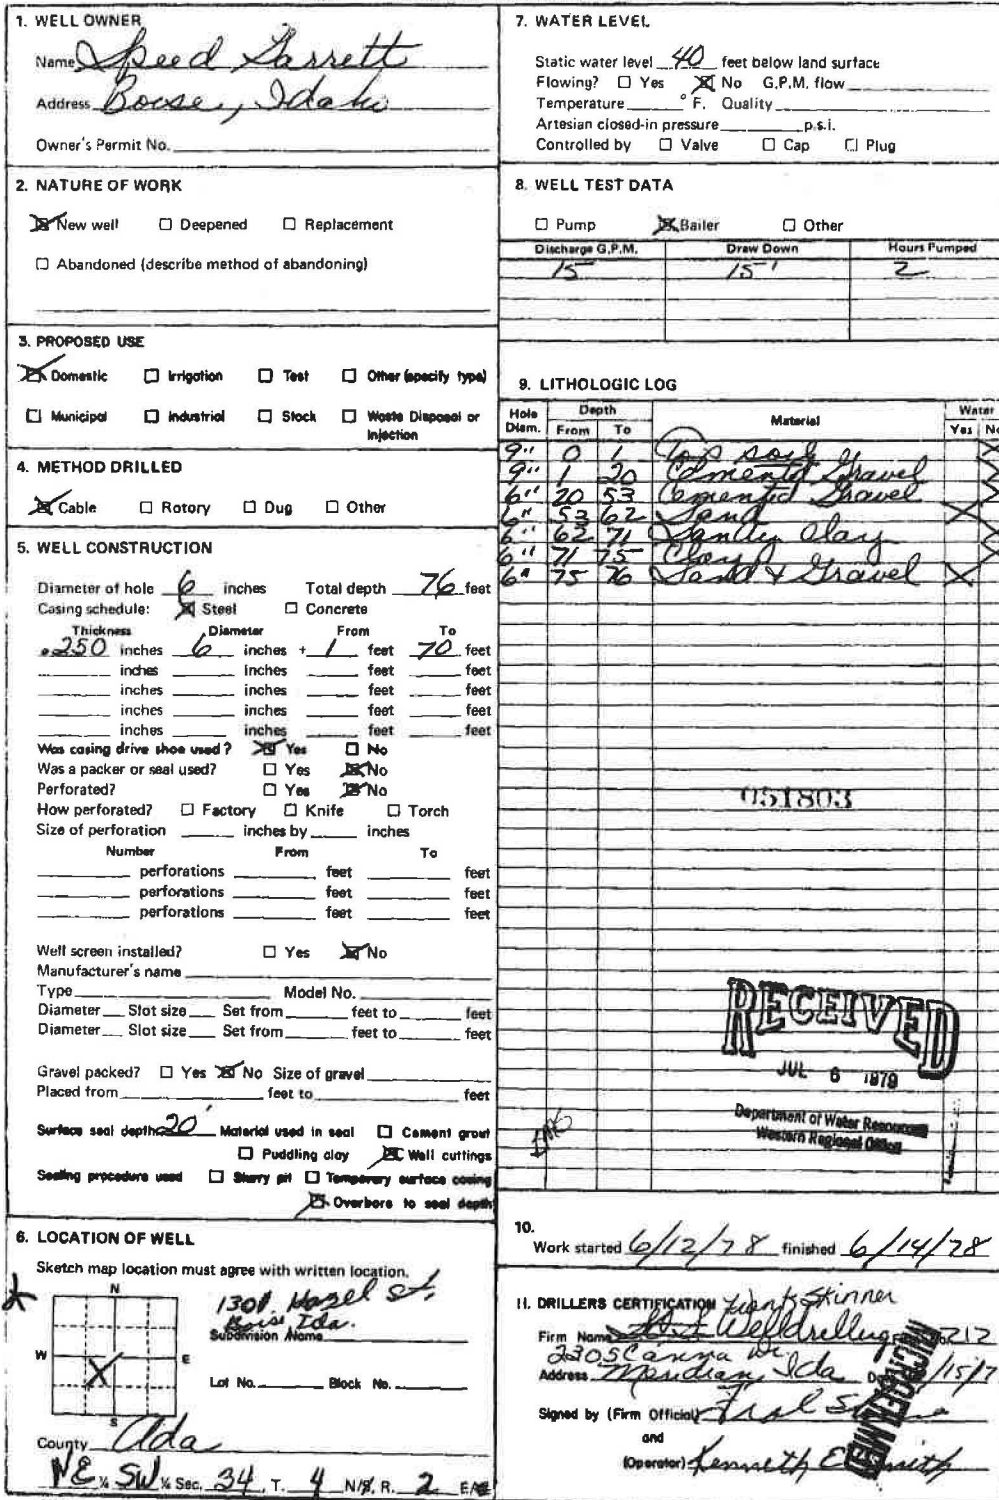 1. WELL OWNER
Name Speed Garrett
Address Boise, Idaho
Owner's Permit No.
2. NATURE OF WORK
New well Deepened Replacement
Abandoned (describe method of abandoning)
3. PROPOSED USE
Domestic Irrigation Test Other (specify type)
Municipal Industrial Stock Waste Disposal or
Injection
4. METHOD DRILLED
Cable Rotary Dug Other
5. WELL CONSTRUCTION
Diameter of hole 6 inches Total depth 76 feet
Casing schedule: Steel Concrete
Thickness Diameter From To
.250 inches 6 inches + 1 feet 70 feet
inches inches feet feet
inches inches feet feet
inches inches feet feet
inches inches feet feet
Was casing drive shoe used? Yes No
Was a packer or seal used? Yes No
Perforated? Yes No
How perforated? Factory Knife Torch
Size of perforation inches by inches
Number From To
perforations feet feet
perforations feet feet
perforations feet feet
Well screen installed? Yes No
Manufacturer's name
Type Model No.
Diameter Slot size Set from feet to feet
Diameter Slot size Set from feet to feet
Gravel packed? Yes No Size of gravel
Placed from feet to feet
Surface seal depth 20' Material used in seal Cement grout
Puddling clay Well cuttings
Sealing procedure used Slurry pit Temporary surface casing
Overbore to seal depth
6. LOCATION OF WELL
Sketch map location must agree with written location.
N
W E
S
X
1301 Hazel St.
Boise Ida.
Subdivision Name
Lot No. Block No.
County Ada
NE ¼ SW ¼ Sec. 34, T. 4 N/S, R. 2 E/W
7. WATER LEVEL
Static water level 40 feet below land surface
Flowing? Yes No G.P.M. flow
Temperature °F. Quality
Artesian closed-in pressure p.s.i.
Controlled by Valve Cap Plug
8. WELL TEST DATA
Pump Bailer Other
Discharge G.P.M. Draw Down Hours Pumped
15 15' 2
9. LITHOLOGIC LOG
Hole Diam. Depth Material Water
From To Yes No
9" 0 1 Top soil X
9" 1 20 Cemented Gravel X
6" 20 53 Cemented Gravel X
6" 53 62 Sand X
6" 62 71 Sandy Clay X
6" 71 75 Clay X
6" 75 76 Sand & Gravel X
051803
RECEIVED
JUL 6 1979
Department of Water Resources
Western Regional Office
10.
Work started 6/12/78 finished 6/14/78
11. DRILLERS CERTIFICATION Skinner
Firm Name Welldrilling 212
Address Meridian, Ida /15/7
Signed by (Firm Official)
and
(Operator) Kenneth E Smith
MICROFILMED